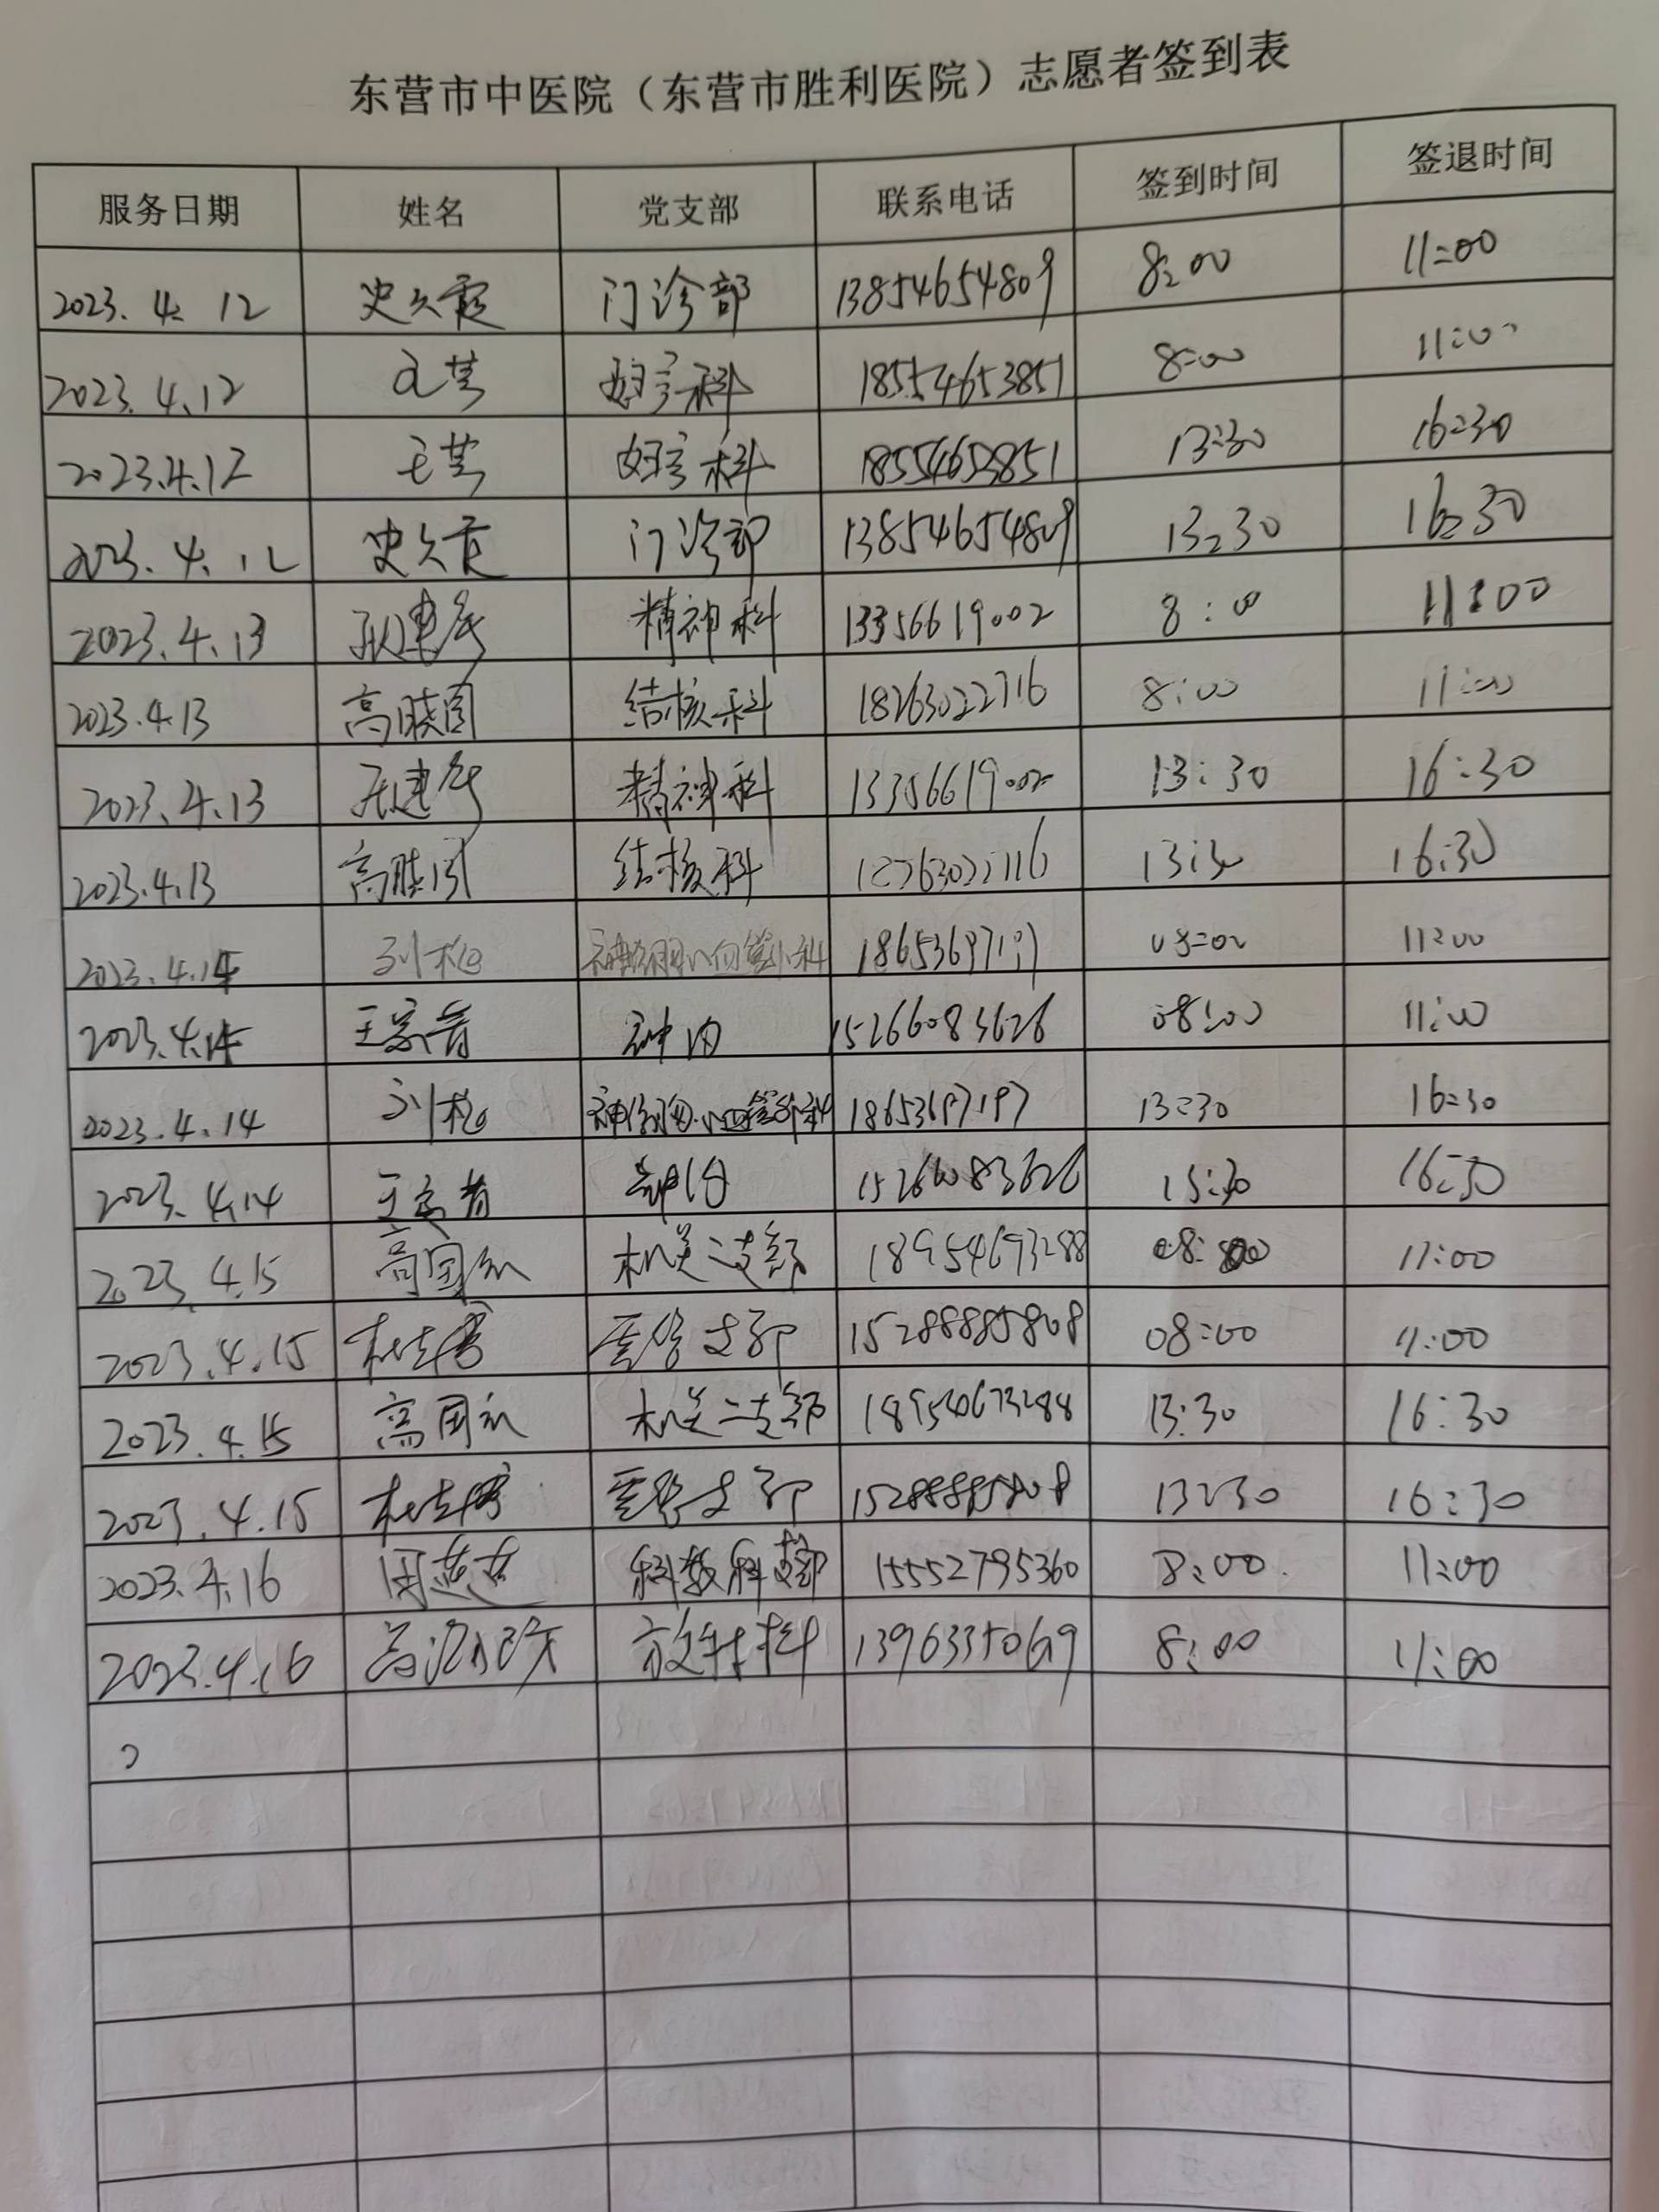 东营市中医院（东营市胜利医院）志愿者签到表
服务日期 姓名 党支部 联系电话 签到时间 签退时间
2023.4.12 史久霞 门诊部 13854654809 8:00 11:00
2023.4.12 妇产科 18554653851 8:00 11:00
2023.4.12 王芸 妇产科 18554653851 13:30 16:30
2023.4.12 史久霞 门诊部 13854654809 13:30 16:30
2023.4.13 精神科 13356619002 8:00 11:00
2023.4.13 高胜国 结核科 18263022716 8:00 11:00
2023.4.13 精神科 13356619002 13:30 16:30
2023.4.13 结核科 13:30 16:30
2023.4.14 刘松 08:00 11:00
2023.4.14 神内 15266083626 08:00 11:00
2023.4.14 刘松 18653697197 13:30 16:30
2023.4.14 神内 15266083626 13:30 16:30
2023.4.15 机关二支部 18954673288 08:00 11:00
2023.4.15 15288885808 08:00 11:00
2023.4.15 机关二支部 13:30 16:30
2023.4.15 15288885808 13:30 16:30
2023.4.16 周燕燕 科教科支部 15552795360 8:00 11:00
2023.4.16 放射科 8:00 11:00